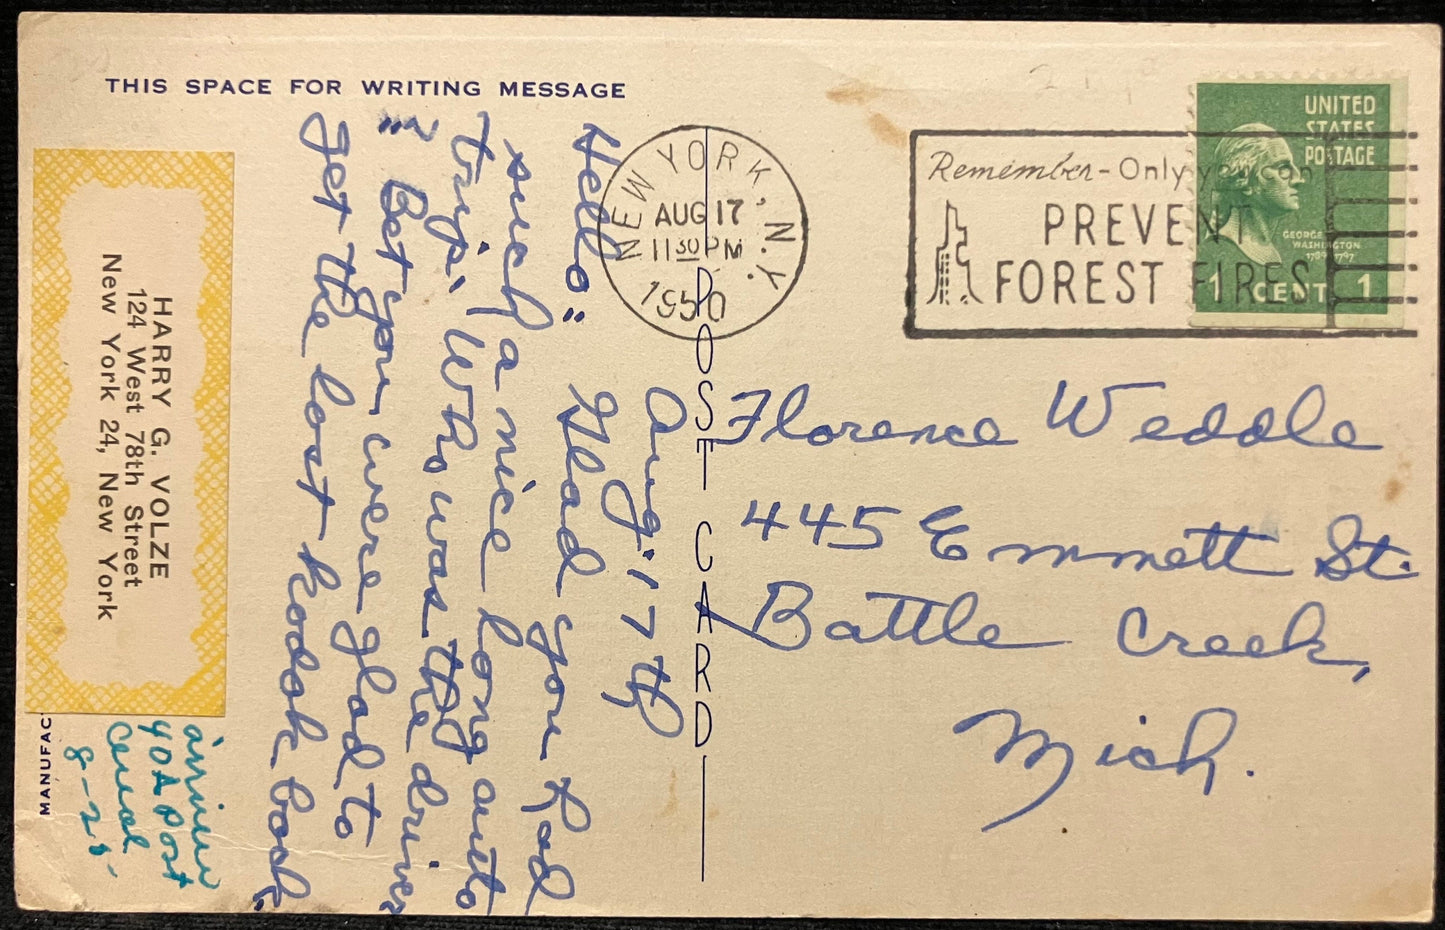 THIS SPACE FOR WRITING MESSAGE
Aug. 17th
Hello: Glad you had
such a nice long auto
trip. Who was the driver
"" Bet you were glad to
get the lost Kodak back.
HARRY G. VOLZE
124 West 78th Street
New York 24, New York
MANUFAC
40A Post
8-25-
NEW YORK, N.Y.
AUG 17
11 30 PM
1950
POST CARD
Remember - Only you can
PREVENT
FOREST FIRES
UNITED
STATES
POSTAGE
GEORGE
WASHINGTON
1789 1797
1 CENT 1
Florence Weddle
445 Emmett St.
Battle Creek,
Mich.